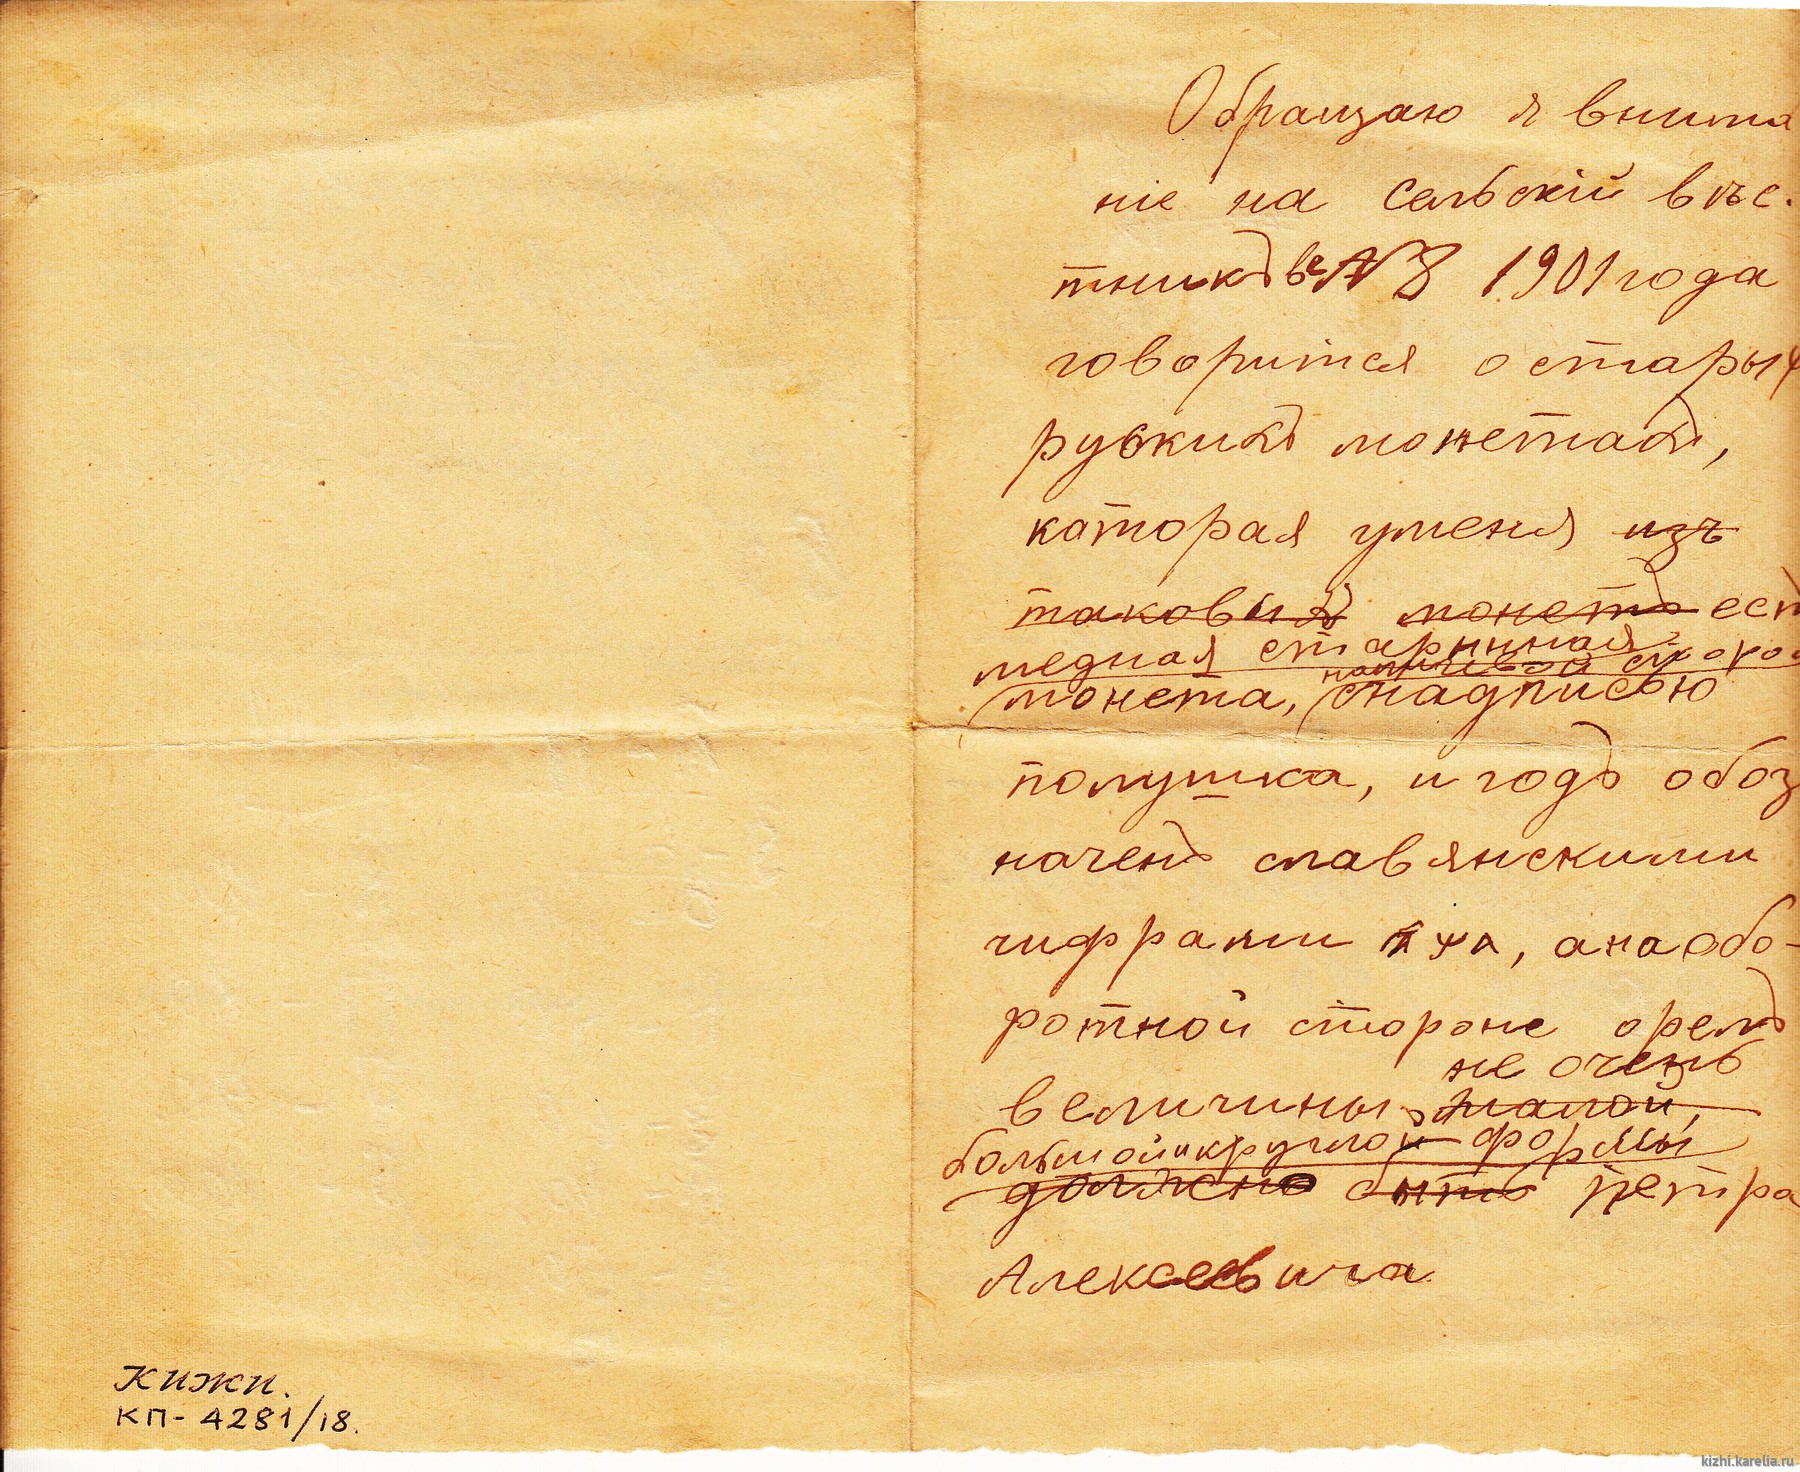 Обращаю я внима
ніе на сельскій вѣс.
тникъ в № 8 1901 года
говорится о старых
рускихъ монетахъ,
каторая уменя изъ
таковыхъ монетъ ест
медная старинная
монета, снадписью
полушка, и годъ обоз
наченъ славянскими
чифрами ҂ѱа, анаобо-
ротной стороне орелъ
не очень
величины малой,
большой и круглой формы
должно быть Петра
Алексеевича
Кижи.
КП-4281/18.
kizhi.karelia.ru